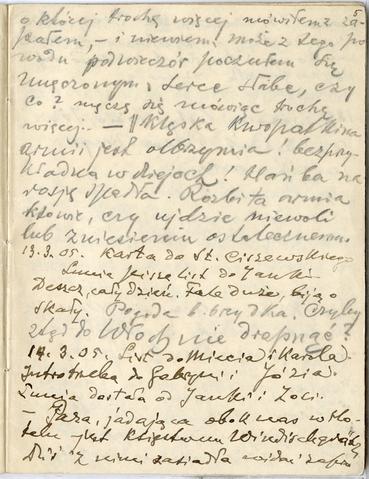 5
o której trochę więcej mówiłem z za-
pałem, – i niewiem, może z tego po
wodu podwieczór poczułem się
zmęczonym. Serce słabe, czy
co? męczę się mówiąc trochę
więcej. – || Klęska Kuropatkina
armii jest olbrzymia! bezprzy-
kładna w dziejach! Hańba na
rosję spadła. Rozbita armia
czy ujdzie niewoli
lub zniesieniu ostatecznemu.
13.3.05. Karta do St. Ciszewskiego
Lunia pisze list do Janki.
Deszcz, cały dzień. Fale duże, biją o
skały. Pogoda b. brzydka. Czyby
stąd do Włoch nie drapnąć?
14.3.05. List do Miecia i Karola.
do Gabryni i Józia.
Lunia dostała od Janki i Zosi.
– Para, jadająca obok nas w ho-
telu jest księstwem Windischgrätz
Dziś z nimi zasiadła